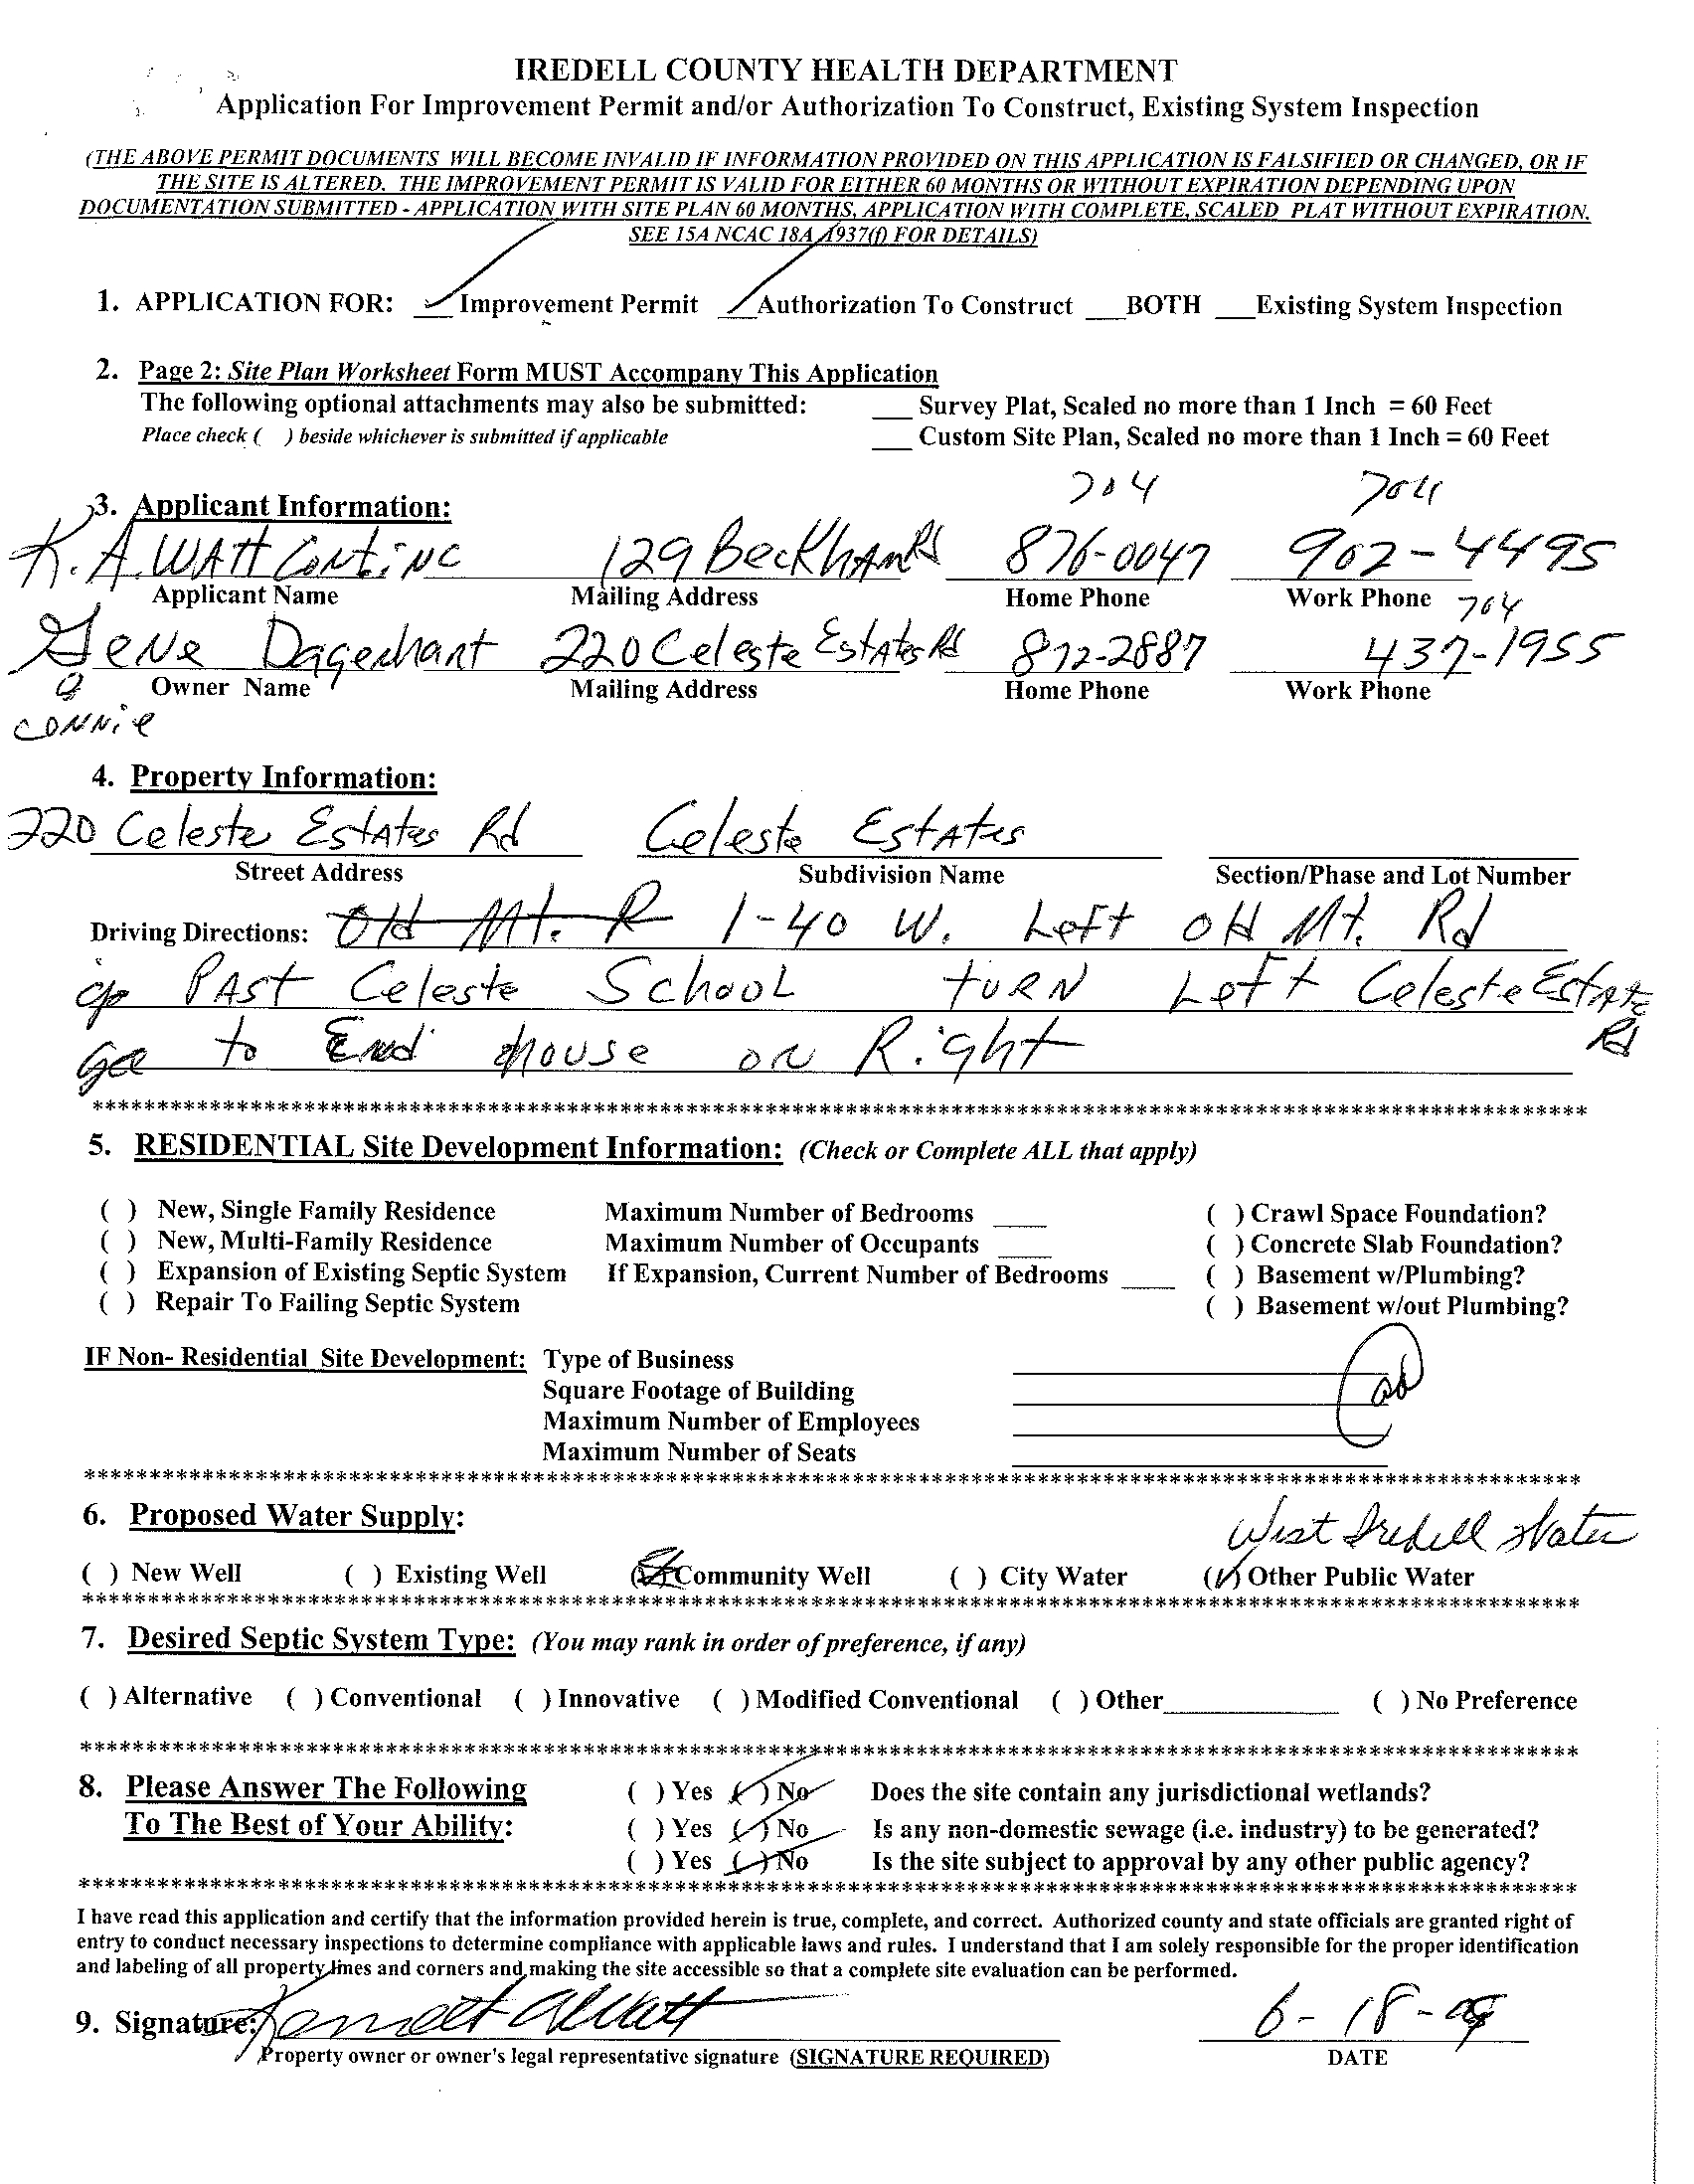 IREDELL COUNTY HEALTH DEPARTMENT
Application For Improvement Permit and/or Authorization To Construct, Existing System Inspection
(THE ABOVE PERMIT DOCUMENTS WILL BECOME INVALID IF INFORMATION PROVIDED ON THIS APPLICATION IS FALSIFIED OR CHANGED, OR IF
THE SITE IS ALTERED. THE IMPROVEMENT PERMIT IS VALID FOR EITHER 60 MONTHS OR WITHOUT EXPIRATION DEPENDING UPON
DOCUMENTATION SUBMITTED - APPLICATION WITH SITE PLAN 60 MONTHS, APPLICATION WITH COMPLETE, SCALED PLAT WITHOUT EXPIRATION.
SEE 15A NCAC 18A .1937(f) FOR DETAILS)
1. APPLICATION FOR: ✓ Improvement Permit ✓ Authorization To Construct ___BOTH ___Existing System Inspection
2. Page 2: Site Plan Worksheet Form MUST Accompany This Application
The following optional attachments may also be submitted: ___ Survey Plat, Scaled no more than 1 Inch = 60 Feet
Place check ( ) beside whichever is submitted if applicable ___ Custom Site Plan, Scaled no more than 1 Inch = 60 Feet
704 704
3. Applicant Information:
K.A. WAtt Cont. iNC 129 BeckhAm Rd 876-0047 902-4495
Applicant Name Mailing Address Home Phone Work Phone 704
Gene Dagenhart 220 Celeste EstAtes Rd 872-2887 437-1955
& Owner Name Mailing Address Home Phone Work Phone
CONNie
4. Property Information:
220 Celeste EstAtes Rd Celeste EstAtes
Street Address Subdivision Name Section/Phase and Lot Number
Driving Directions: Old Mt. R I-40 W. Left Old Mt. Rd
go PAst Celeste SchooL tURN Left Celeste EstAte
Rd
Go to End house oN Right
****************************************
5. RESIDENTIAL Site Development Information: (Check or Complete ALL that apply)
( ) New, Single Family Residence Maximum Number of Bedrooms ____ ( ) Crawl Space Foundation?
( ) New, Multi-Family Residence Maximum Number of Occupants ____ ( ) Concrete Slab Foundation?
( ) Expansion of Existing Septic System If Expansion, Current Number of Bedrooms ____ ( ) Basement w/Plumbing?
( ) Repair To Failing Septic System ( ) Basement w/out Plumbing?
IF Non- Residential Site Development: Type of Business
Square Footage of Building
Maximum Number of Employees
Maximum Number of Seats
****************************************
6. Proposed Water Supply: West Iredell Water
( ) New Well ( ) Existing Well ( ) Community Well ( ) City Water (✓) Other Public Water
****************************************
7. Desired Septic System Type: (You may rank in order of preference, if any)
( ) Alternative ( ) Conventional ( ) Innovative ( ) Modified Conventional ( ) Other____________ ( ) No Preference
****************************************
8. Please Answer The Following ( ) Yes (✓) No Does the site contain any jurisdictional wetlands?
To The Best of Your Ability: ( ) Yes (✓) No Is any non-domestic sewage (i.e. industry) to be generated?
( ) Yes (✓) No Is the site subject to approval by any other public agency?
****************************************
I have read this application and certify that the information provided herein is true, complete, and correct. Authorized county and state officials are granted right of
entry to conduct necessary inspections to determine compliance with applicable laws and rules. I understand that I am solely responsible for the proper identification
and labeling of all property lines and corners and making the site accessible so that a complete site evaluation can be performed.
9. Signature: 6-18-09
Property owner or owner's legal representative signature (SIGNATURE REQUIRED) DATE